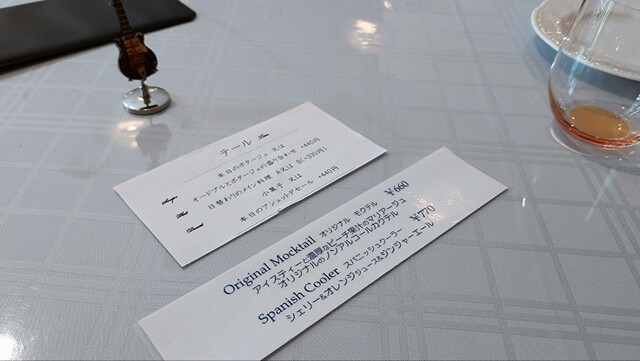 テール
本日のポタージュ 又は
オードブルとポタージュの盛り合わせ +440円
日替わりのメイン料理 A又は B(+330円)
小菓子 又は
本日のアシェットデセール +440円
Original Mocktail オリジナル モクテル ¥660
アイスティーと濃厚なピーチ果汁のマリアージュ
オリジナルのノンアルコールカクテル
Spanish Cooler スパニッシュクーラー ¥770
シェリー&オレンジジュース&ジンジャーエール